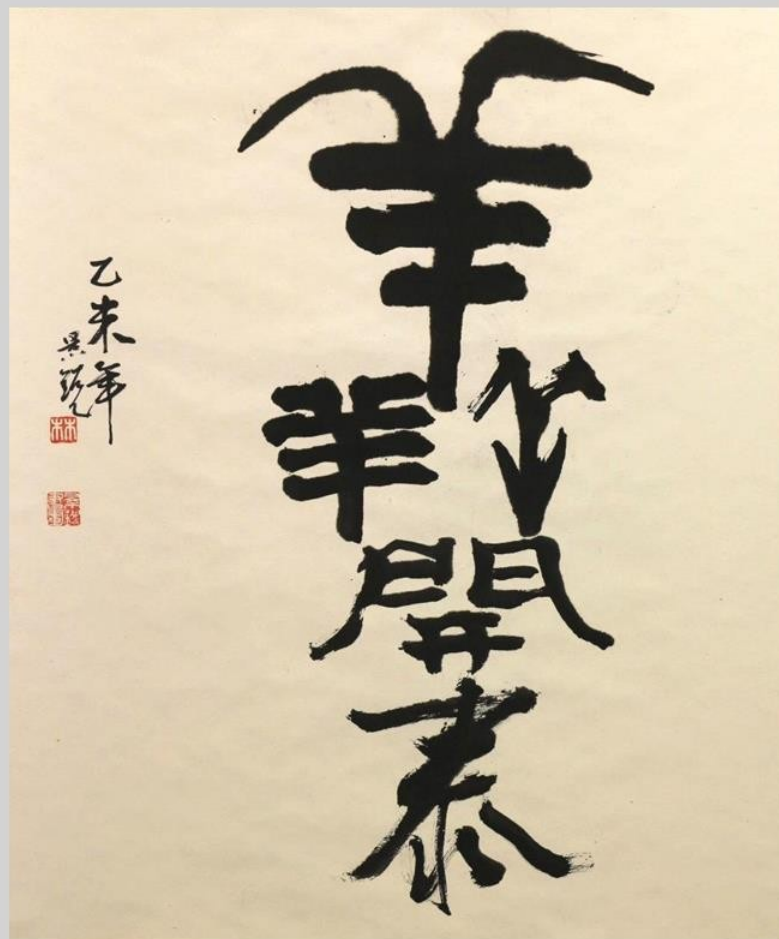 羊羊羊開泰
乙未年
林